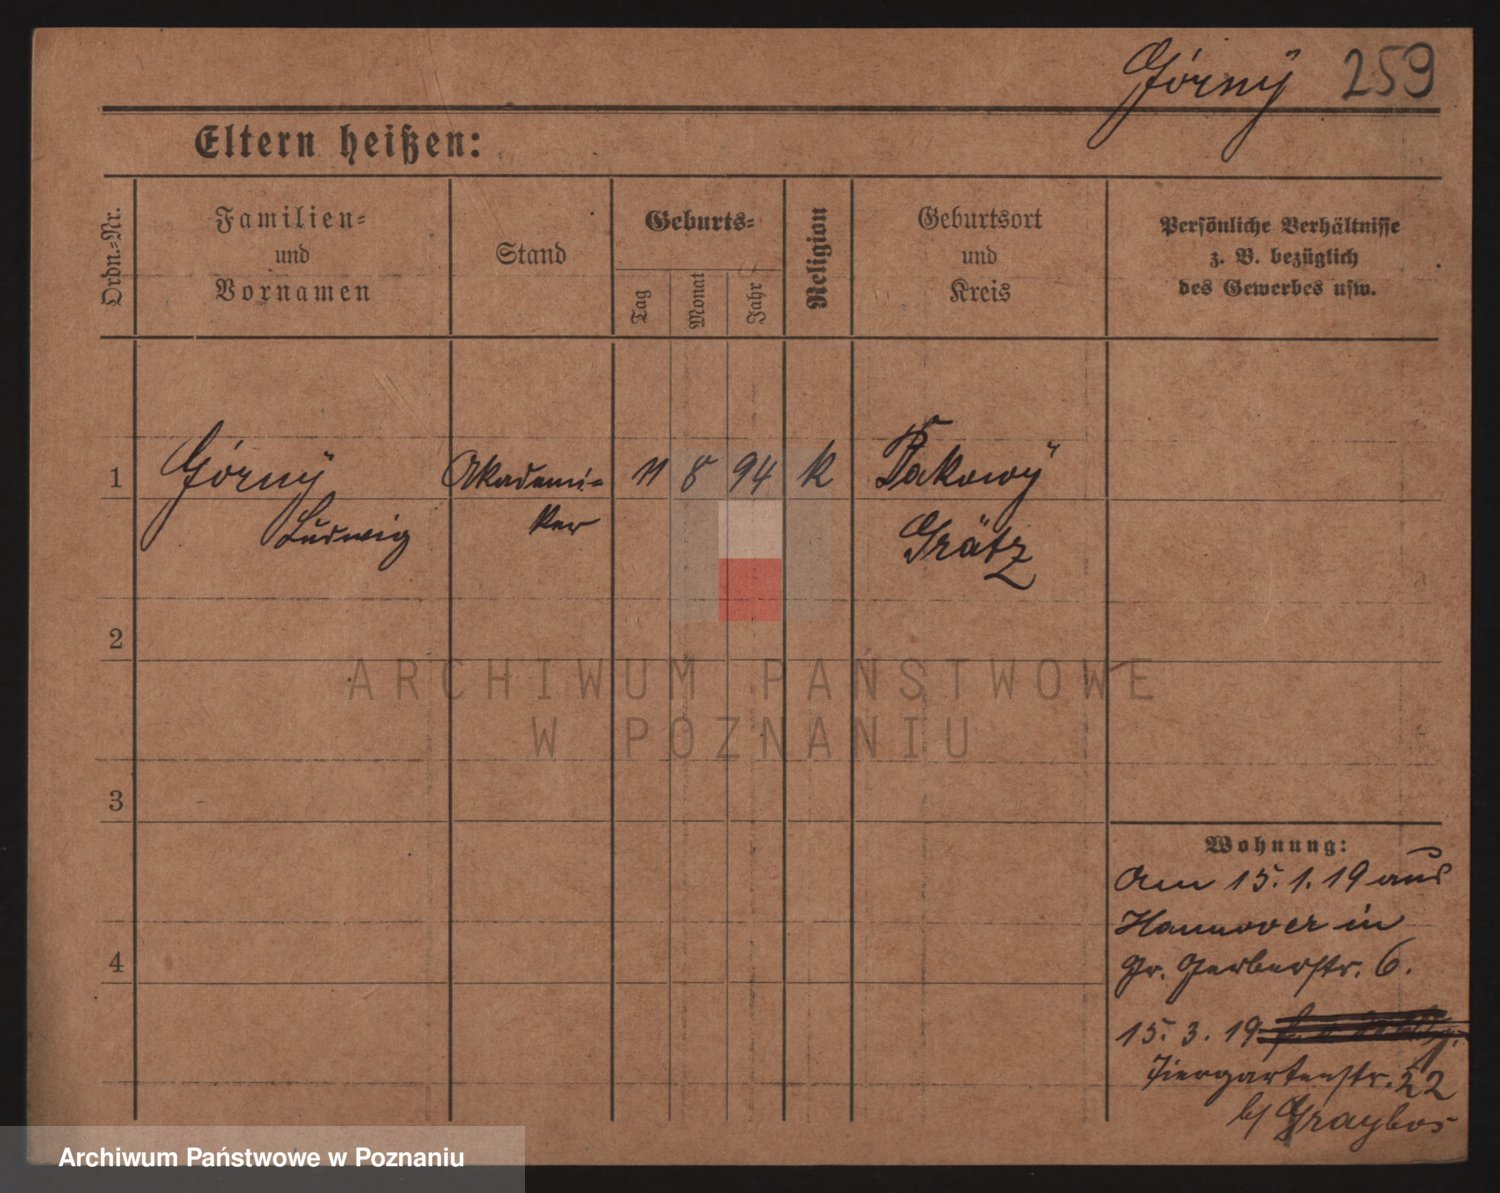 Górnÿ 259
Eltern heißen:
Ordn.-Nr.
Familien-
und
Vornamen
Stand
Geburts-
Tag
Monat
Jahr
Religion
Geburtsort
und
Kreis
Persönliche Verhältnisse
z. B. bezüglich
des Gewerbes usw.
1 Górnÿ Akademi- 11 8 94 k Ptakowÿ
Ludwig ker Grätz
2
ARCHIWUM PAŃSTWOWE
W POZNANIU
3
Wohnung:
Am 15.1.19 aus
Hannover in
4
Gr. Gerberstr. 6.
15.3.19
Tiergartenstr. 22
b/
Archiwum Państwowe w Poznaniu